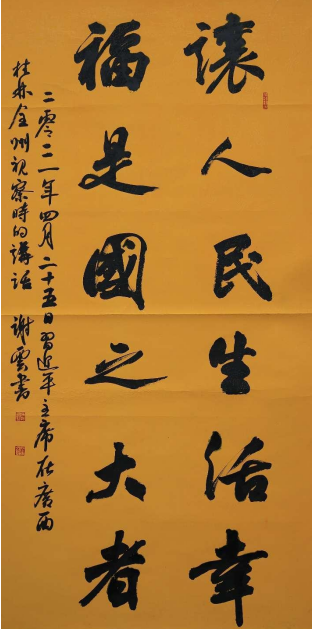 讓人民生活幸
福是國之大者
二零二一年四月二十五日習近平主席在廣西
桂林全州視察時的講話 謝雲書